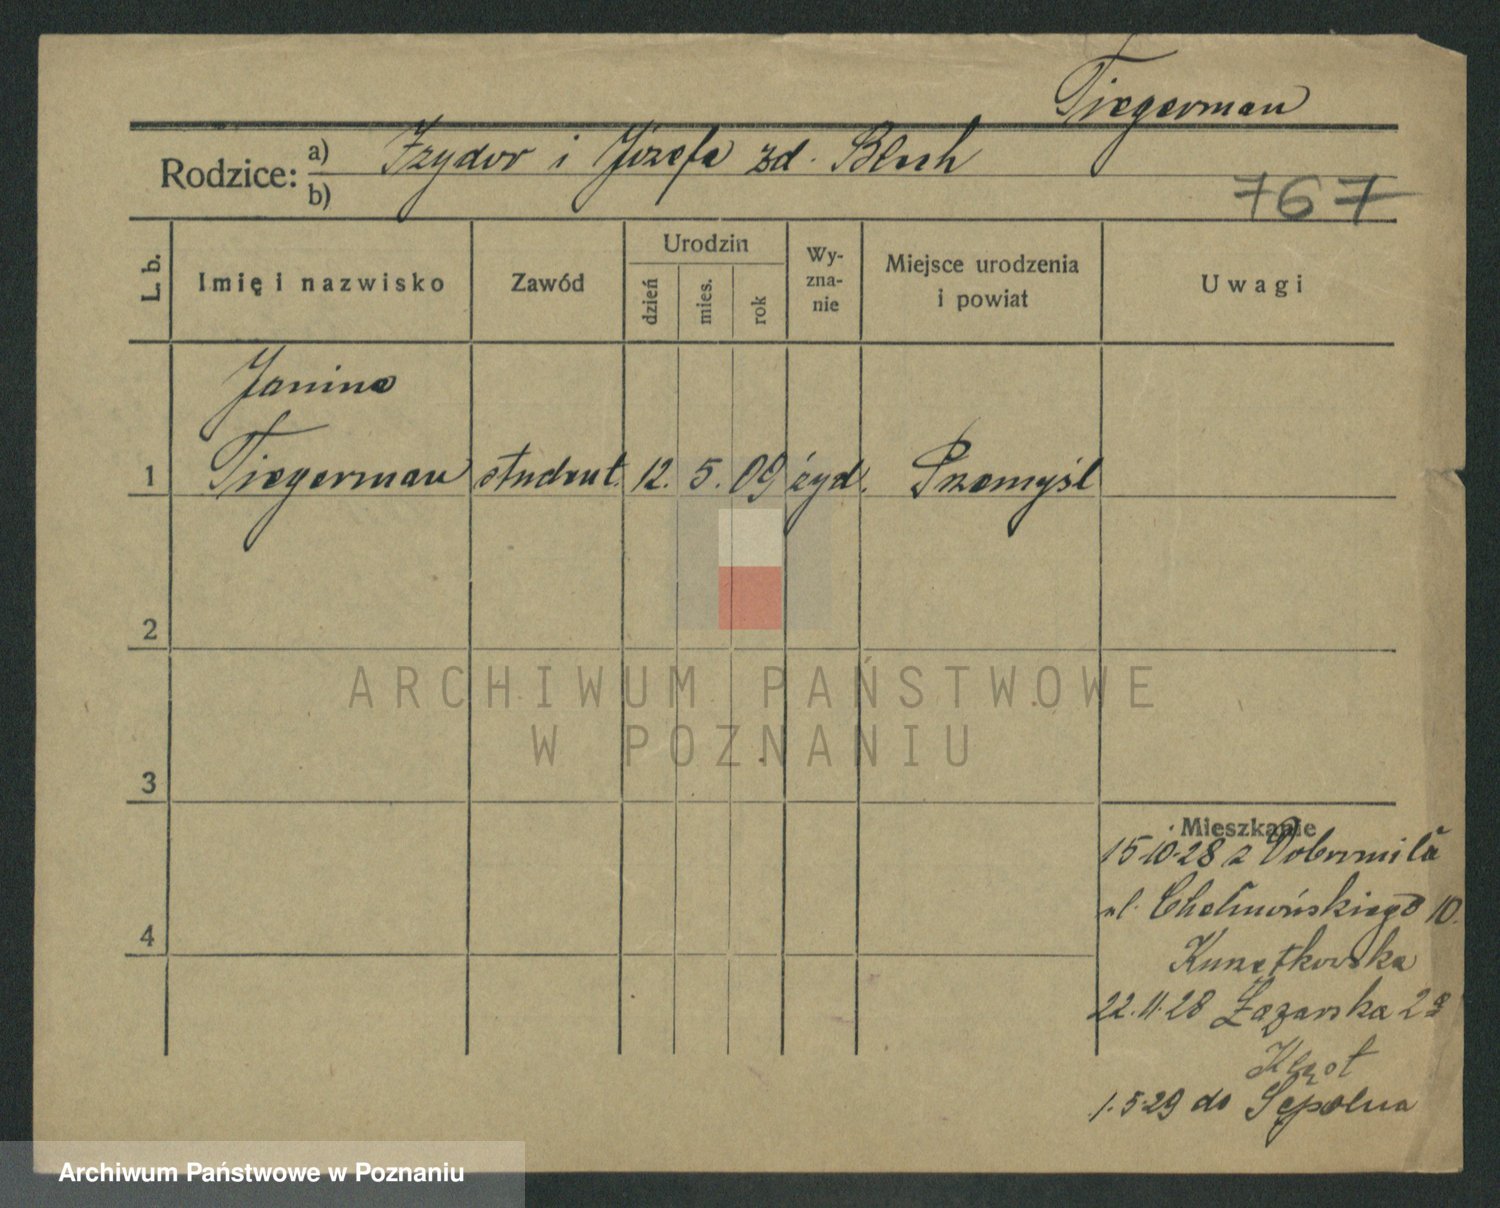 Tiegerman
Rodzice: a) Izydor i Józefa zd. Blech
b)
767
L. b.
Imię i nazwisko
Zawód
Urodzin
dzień
mies.
rok
Wy-
zna-
nie
Miejsce urodzenia
i powiat
Uwagi
Janina
1 Tiegerman student. 12. 5. 09 żyd. Przemyśl
2
3
4
ARCHIWUM PAŃSTWOWE
W POZNANIU
Mieszkanie
15.10.28 z Dobromila
ul. Chełmońskiego 10.
22.11.28 Łazarska 2a
1.5.29 do Sępolna
Archiwum Państwowe w Poznaniu